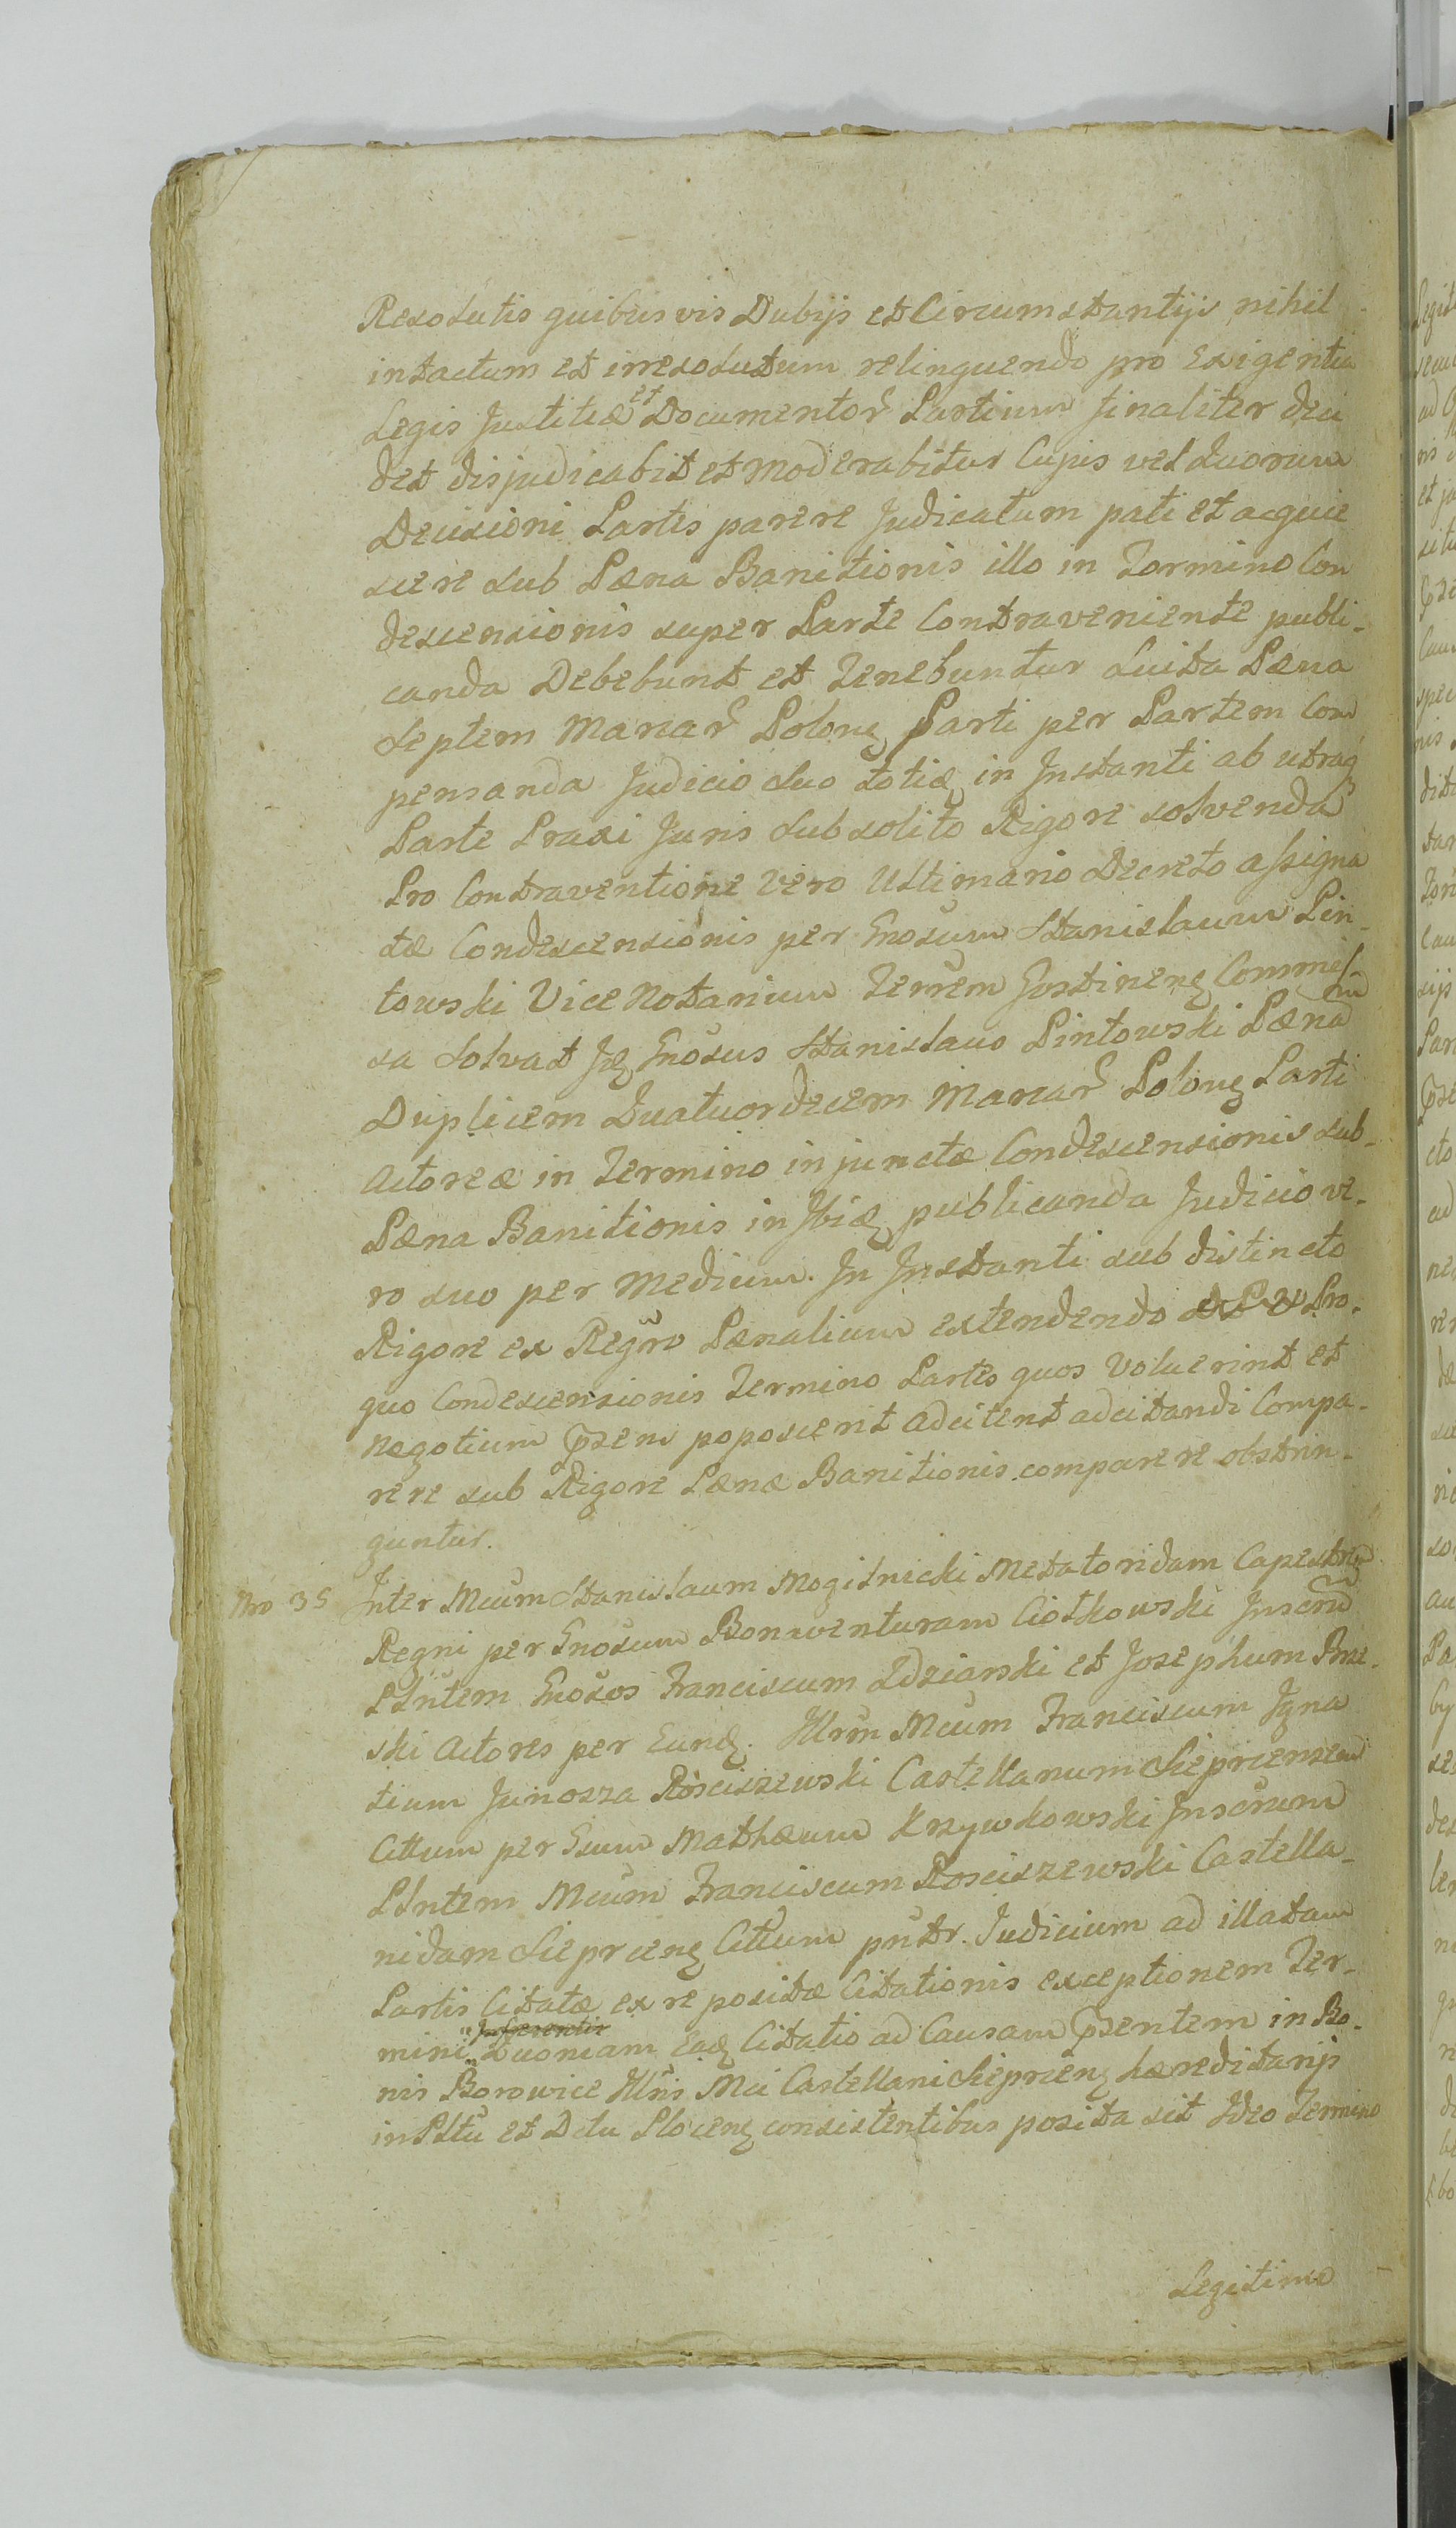 Resolutis quibusvis Dubijs et Circumstantijs nihil
intactum et irresolutum relinquendo pro Exigentia
Legis Justitiæ et Documentor̃ Partium finaliter deci
det disjudicabit et moderabitur Cujus vel quorum
Decisioni Partes parere Judicatum pati et acquie
scere sub Pæna Banitionis illo in Termino Con
descensionis super Parte Contraveniente publi-
canda Debebunt et Tenebuntur Luita Pæna
Septem Marcar̃ Polonq Parti per Partem Com
pensanda Judicio Suo totiq in Instanti ab utraq
Parte Praxi Juris Sub solito Rigore solvenda
Pro Contraventione Vero Ultimario Decreto assigna
tæ Condescensionis per Gnosum Stanislaum Pin-
towski Vice Notarium Terrem Gostinenq Commis-
sa Solvat Jq Gnosus Stanislaus Pintowski Pænam
Duplicem Quatuordecem Marcar̃ Polonq Parti
Actoreæ in Termino injunctæ Condescensionis sub-
Pæna Banitionis in Ibiq publicanda Judicio ve-
ro suo per Medium. In Instanti sub distincto
Rigore ex Regr̃o Pænalium extendendo Pro-
quo Condescensionis Termino Partes quos Voluerint et
Negotium p̃sens poposcerit adcitent adcitandi Compa-
rere sub Rigore Pænæ Banitionis comparere obstrin-
guntur.
Nro 35 Inter Mcum Stanislaum Mogilnicki Metatoridam Capestrem
Regni per Gnosum Bonaventuram Ciotkowski Inscrũ
Plntem Gnosos Franciscum Zdziarski et Josephum Brze-
ski Actores per Eundq. Illrm Mcum Franciscum Igna
tium Junosza Rosciszewski Castellanum Sieprcensem
Cittum per Gsum Mathæum Krzywkowski Inscrum
Plntem Mcum Franciscum Rosciszewski Castella-
nidam Sieprcenq Cittum pñtr. Judicium ad illatam
Partis Citatæ ex re positæ Citationis exceptionem Ter-
mini Inferentis Quoniam Eadq Citatio ad Causam p̃sentem in Bo-
nis Borowice Illris Mci Castellani Sieprcenq hæreditarijs
in Pltu et Dctu Plocenq consistentibus posita sit Ideo Termino
Legitime